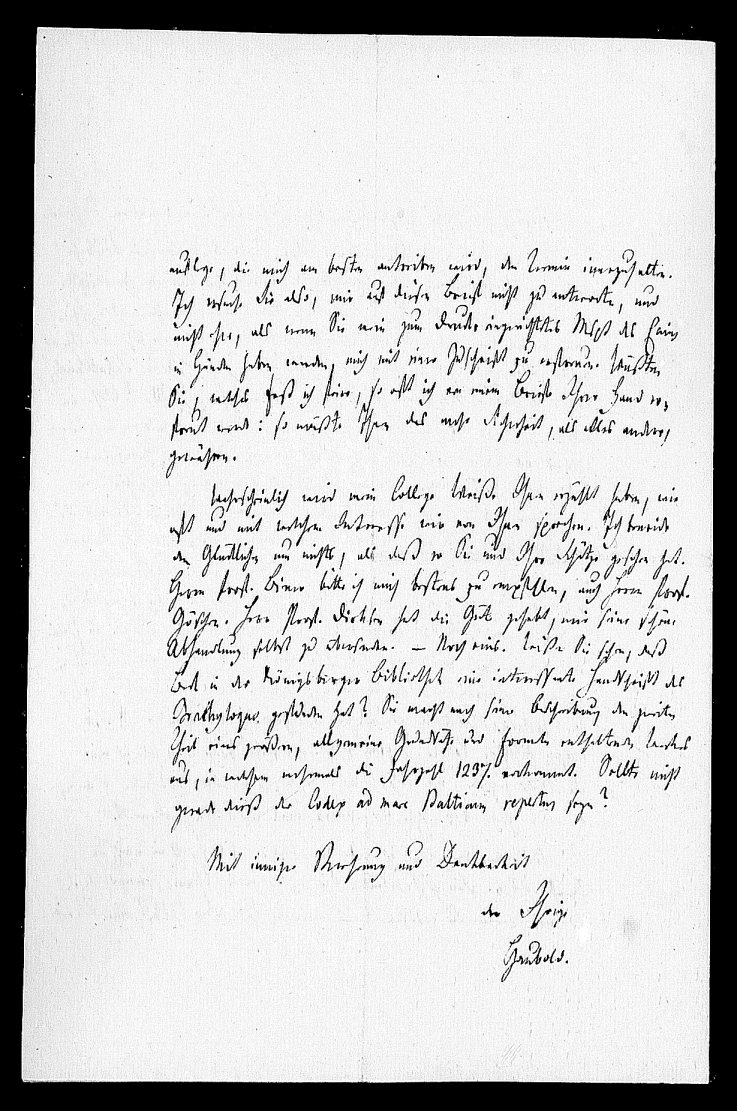 auflege, die mich am besten antreiben wird, den Termin inne zu halten.
Ich ersuche Sie also, mir auf diesen Brief nicht zu antworten, und
nicht eher, als wenn Sie mein zum Drucke eingerichtetes Mspt des Cajus
in Händen haben werden, mich mit einer Zuschrift zu erfreuen. Wüßten
Sie, welches Fest ich feire, so oft ich an einem Briefe Ihre Hand er-
kannt werde: so müßte Ihnen das mehr Sicherheit, als alles andere,
gewähren.
Wahrscheinlich wird mein College Weiße Ihnen erzählt haben, wie
oft und mit welchem Interesse wir von Ihnen sprechen. Ich beneide
den Glücklichen um nichts, als daß er Sie und Ihre Schätze gesehen hat.
Herrn Prof. Biener bitte ich mich bestens zu empfehlen, auch Herrn Prof.
Göschen. Herr Prof. Dirksen hat die Güte gehabt, mir seine schöne
Abhandlung selbst zu übersenden. — Noch eins. Wissen Sie schon, daß
Beck in der Königsberger Bibliothek eine interessante Handschrift des
Brachylogus gefunden hat? Sie macht nach seiner Beschreibung den zweiten
Theil eines größern, allgemeine Grundsätze und Formeln enthaltenden Werkes
aus, in welchem mehrmals die Jahrzahl 1237. vorkommt. Sollte nicht
gerade dieß der Codex ad mare Balticum repertus seyn?
Mit inniger Verehrung und Dankbarkeit
der Ihrige
Haubold.